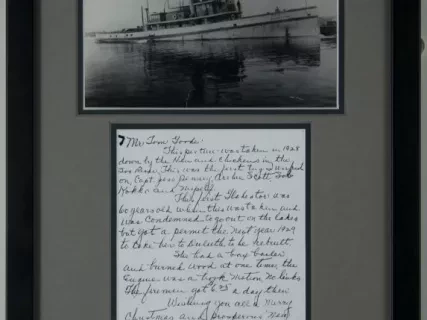 Mr. Tom Goode.
This picture was taken in 1928
down by the Hen and Chickens in the
This was the first tug I worked
on Capt. Jess
and myself
This first was
60 years old when this was taken and
was Condemned to go out on the lakes
but got a permit the next year 1929
to take her to Duluth to be rebuilt
She had a box boiler
and burned wood at one time the
Engine was a high no links
The firemen got a day then
Wishing you all a Merry
Christmas and prosperous New